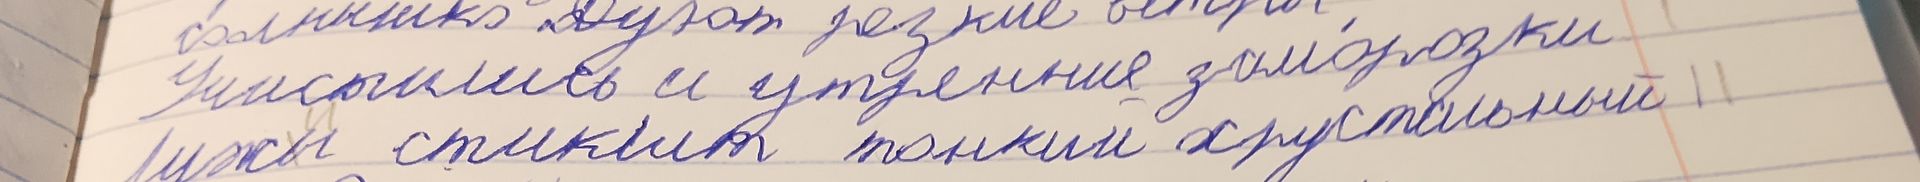 солнышко. Дуют резкие ветры
Участились и утренние заморозки
Лужи стеклит тонкий хрустальный